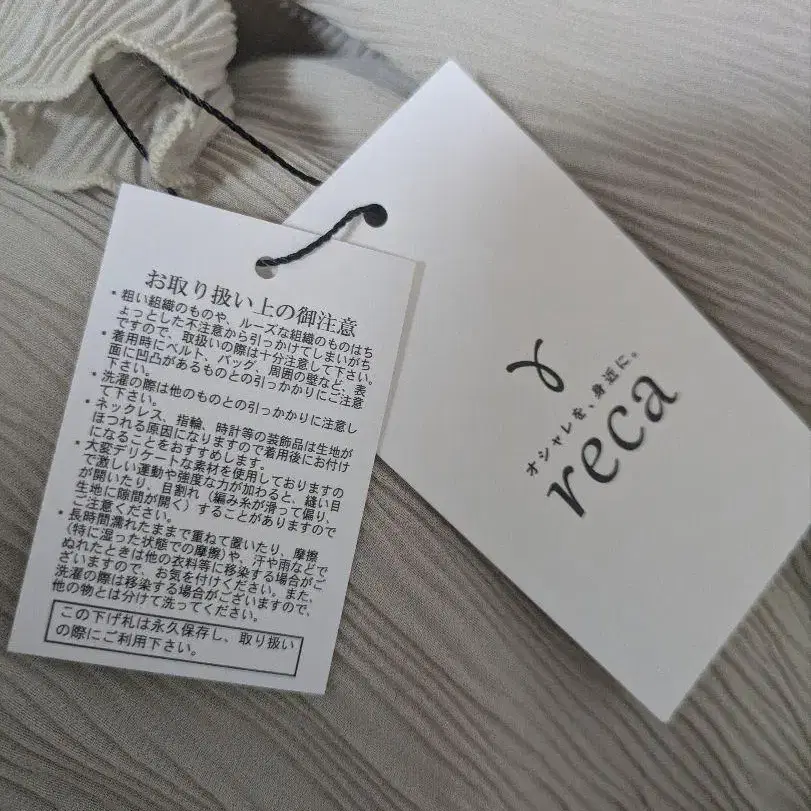 お取り扱い上の御注意
・粗い組織のものや、ルーズな組織のものはち
ょっとした不注意から引っかけてしまいがち
ですので、取扱いの際は十分注意して下さい。
・着用時にベルト、バッグ、周囲の壁など、表
面に凹凸があるものとの引っかかりにご注意
下さい。
・洗濯の際は他のものとの引っかかりに注意し
て下さい。
・ネックレス、指輪、時計等の装飾品は生地が
ほつれる原因になりますので着用後にお付け
になることをおすすめします。
・大変デリケートな素材を使用しておりますの
で激しい運動や強度な力が加わると、縫い目
が開いたり、目割れ（編み糸が滑って偏り、
生地に隙間が開く）することがありますので
ご注意ください。
・長時間濡れたままで重ねて置いたり、摩擦
（特に湿った状態での摩擦）や、汗や雨などで
ぬれたときは他の衣料等に移染する場合がご
ざいますので、お気を付けください。また、
洗濯の際は移染する場合がございますので、
他の物とは分けて洗ってください。
この下げ札は永久保存し、取り扱い
の際にご利用下さい。
オシャレを、身近に。
reca